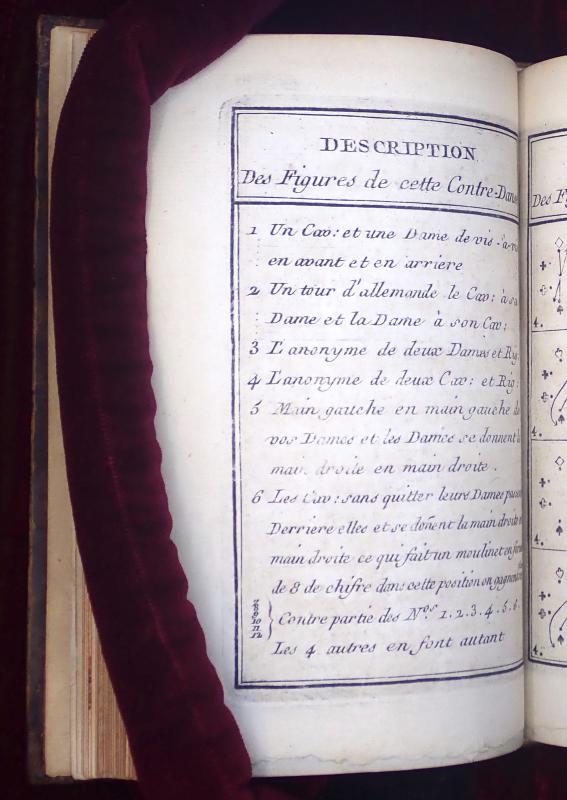 DESCRIPTION
Des Figures de cette Contre-Danse
1 Un Cav: et une Dame de vis-à-vis
en avant et en arriere
2 Un tour d'allemande le Cav: à sa
Dame et la Dame à son Cav:
3 L'anonyme de deux Dames et Rig:
4 L'anonyme de deux Cav: et Rig:
5 Main gauche en main gauche de
vos Dames et les Dames se donnent la
main droite en main droite.
6 Les Cav: sans quitter leurs Dames passent
Derriere elles et se doñent la main droite
main droite ce qui fait un moulinet en forme
de 8 de chifre dans cette position on gagne
7
8
9
10
11
12
} Contre partie des Nos. 1. 2. 3. 4. 5. 6.
Les 4 autres en font autant
Des
4.
4.
4.
4.